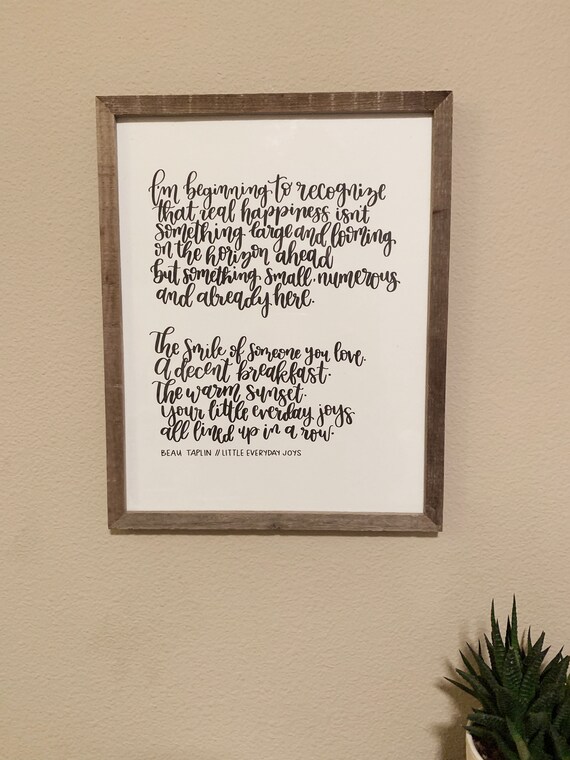 I'm beginning to recognize
that real happiness isn't
something large and looming
on the horizon ahead
but something small. numerous
and already here.
The smile of someone you love.
A decent breakfast.
The warm sunset.
your little everday joys
all lined up in a row.
BEAU TAPLIN // LITTLE EVERYDAY JOYS